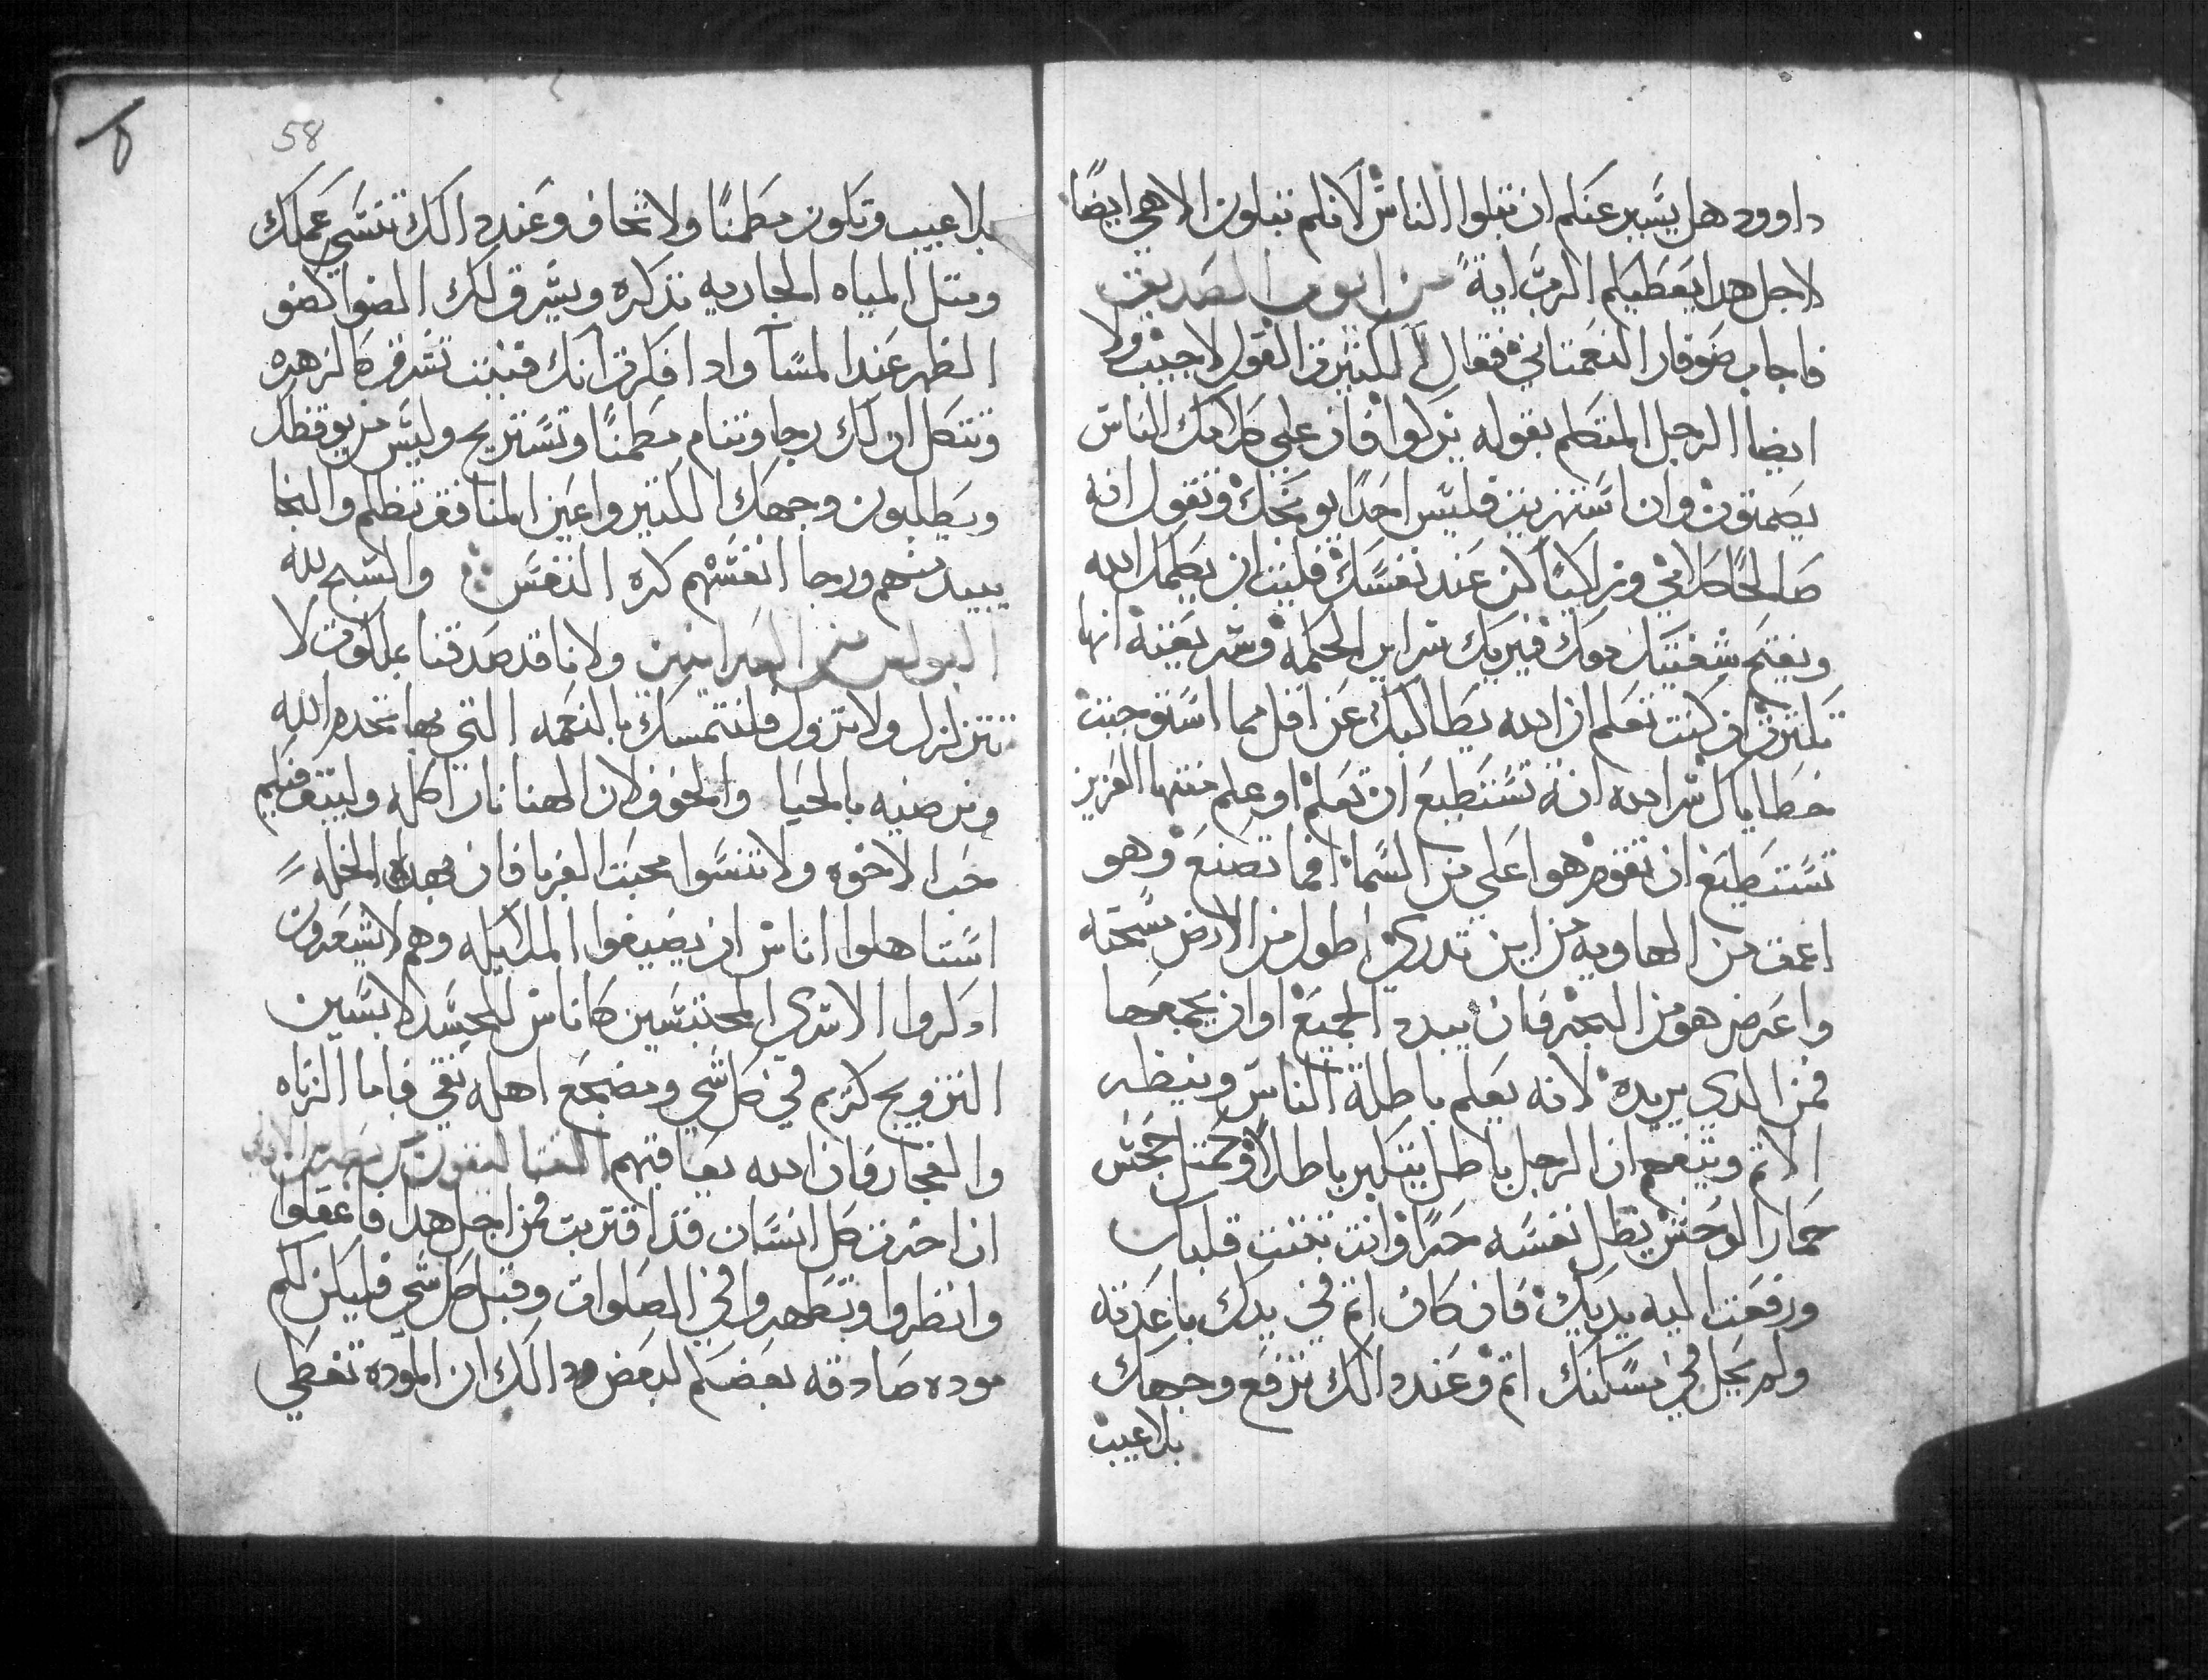 داوود هل يسير عنكم ان تبلوا الناس لانكم تبلون الاهي ايضًا
لاجل هدا يعطيكم الرب ايةً من ايوب الصديق
فاجاب صوفار النعمتاني فقال الكثير في القول لاجيب ولا
ايضا الرجل المتكلم بقوله يزكوا فان علي كلامك الناس
يصمتون وان استهزيت فليس احدًا يوبخك وتقول انه
صالحًا كلامي وزاكيًا كنت عند نفسك فليت ان يكلمك الله
ويفتح شفتيك معك فيريك سراير الحكمه وشريعته انها
تكترت ان كنت تعلم ان الله يطالبك عن اقل مما استوجبت
خطاياك اثر الله انه تستطيع ان تعلم او علم منتها العزيز
تستطيع ان تقوم هوا علي من السما فما تصنع وهو
اعمق من الهاويه من اين تدري اطول من الارض مسحته
واعرض هو من البحر فان يبدد الجميع او ان يجمعها
فمن الدي يريده لانه يعلم باطلة الناس وينظر
الاتم ويتفهم ان الرجل باطل يتكبر باطلاً وكمتل جحش
حمار الوحش يظل نفسه حرًا وانت تبتت قلبك
ورفعت اليه يديك فان كان اتم في يدك باعدته
ولم يحل في مسكنك اتم وعند دالك ترفع وجهك
بلا عيب
58
بلا عيب وتكون مطمنًا ولا تخاف وعند دالك تنسي عملك
ومتل المياه الجاريه تدكره ويشرق لك الضوا كضو
الظهر عند المسآ وادا فكرت انك فنيت تشرق كالزهره
وتتكل ان لك رجا وتنام مطمنًا وتستريح وليس من يوقظك
ويطلبون وجهك الكتير واعين المنافق تظلم والنجا
يبيد منهم ورجا انفسهم كره النفس والسبح لله
البولس من العبرانيين ولانا قد صدقنا بملكوت لا
تتزلزل ولا تزول فلنتمسك بالنعمه التي بها نخدم الله
ونرضيه بالحيا والخوف لان الهنا نار اكله وليتبت فيكم
حب الاخوه ولا تنسوا محبت الغربا فان بهده الخله
استاهلوا اناس ان يضيفوا الملايكه وهم لا يشعرون
ادكروا الاسري المحتبسين كاناس للجسد لابسين
التزويج كريم في كل شي ومضجع اهله نقي فاما الزناه
والفجار فان الله يعاقبهم القتاليقون من بطرس الاولي
ان اخرت كل انسان قد اقتربت فمن اجل هدا فاعقلوا
وانظروا وتطهروا في الصلوات وقبل كل شي فليكن لكم
موده صادقه بعضكم لبعض ودالك ان الموده تغطي